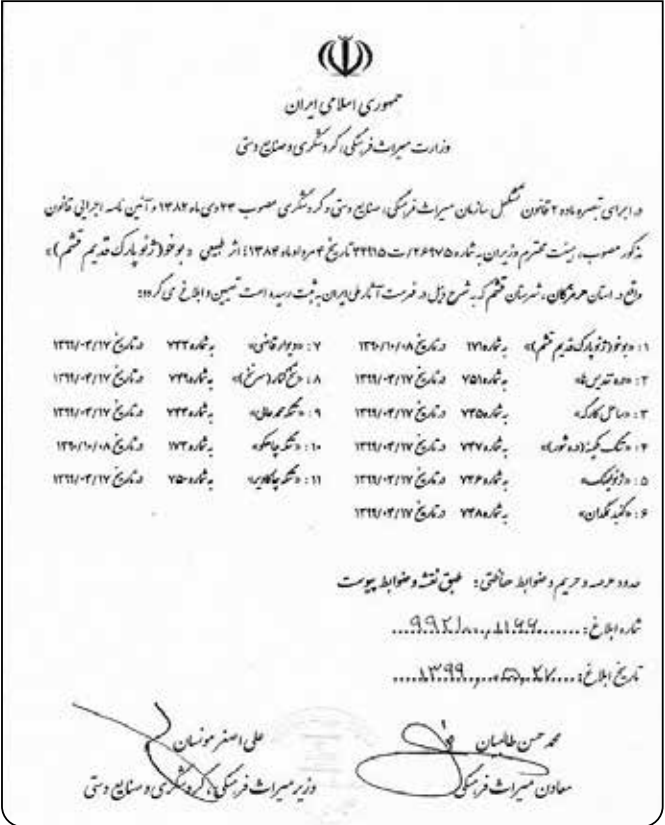 جمهوری اسلامی ایران
وزارت میراث فرهنگی، گردشگری و صنایع دستی
در اجرای تبصره ماده ۲ قانون تشکیل سازمان میراث فرهنگی، صنایع دستی و گردشگری مصوب ۲۳ دی ماه ۱۳۸۲ و آئین نامه اجرائی قانون
مذکور مصوب، هیئت محترم وزیران به شماره ۲۶۹۷۵/ت ۳۲۹۱۵ تاریخ ۴ مرداد ماه ۱۳۸۴؛ اثر طبیعی « بوخو (ژئوپارک قدیم قشم) »
واقع در استان هرمزگان، شهرستان قشم که به شرح ذیل در فهرست آثار ملی ایران به ثبت رسیده است تعیین و ابلاغ می گردد:
۱: «بوخو (ژئوپارک قدیم قشم)» به شماره ۱۷۱ در تاریخ ۱۳۹۰/۱۰/۰۸
۲: «دره تندیس ها» به شماره ۷۵۱ در تاریخ ۱۳۹۹/۰۳/۱۷
۳: «ساحل کارگه» به شماره ۷۳۵ در تاریخ ۱۳۹۹/۰۳/۱۷
۴: به شماره ۷۳۷ در تاریخ ۱۳۹۹/۰۳/۱۷
۵: به شماره ۷۳۶ در تاریخ ۱۳۹۹/۰۳/۱۷
۶: «گنبد نمکدان» به شماره ۷۳۸ در تاریخ ۱۳۹۹/۰۳/۱۷
۷: «دیوار قاضی» به شماره ۷۳۳ در تاریخ ۱۳۹۹/۰۳/۱۷
۸: به شماره ۷۴۹ در تاریخ ۱۳۹۹/۰۳/۱۷
۹: «تنگه عالی» به شماره ۷۳۴ در تاریخ ۱۳۹۹/۰۳/۱۷
۱۰: «تنگه چاهکوه» به شماره ۱۷۲ در تاریخ ۱۳۹۰/۱۰/۰۸
۱۱: «تنگه چاکاویر» به شماره ۷۵۰ در تاریخ ۱۳۹۹/۰۳/۱۷
حدود عرصه و حریم و ضوابط حفاظتی: طبق نقشه و ضوابط پیوست
شماره ابلاغ: ۹۹۲۱۰۰۰۱۱۶۶
تاریخ ابلاغ: ۱۳۹۹،۰۵،۲۷
محمد حسن طالبیان
معاون میراث فرهنگی
علی اصغر مونسان
وزیر میراث فرهنگی، گردشگری و صنایع دستی